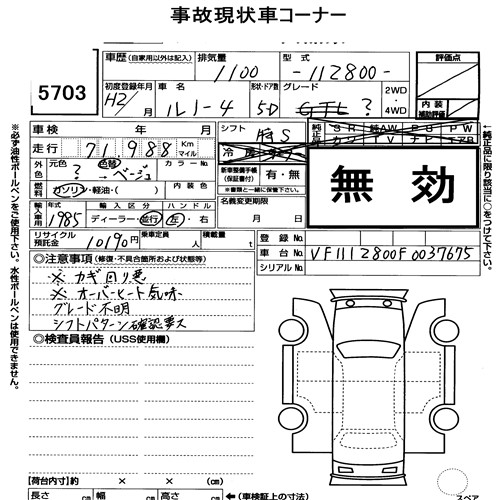 事故現状車コーナー
5703
車歴(自家用以外は記入) 排気量 型式 評価点
1100 -112800-
初度登録年月 車名 形状・ドア数 グレード 2WD・4WD 内装補助評価
H2/ ルノー4 5D GTL ?
車検 年 月 シフト
走行 71,988 Km マイル
外色 元色 色替 カラーNo.
? → ベージュ
燃料 ガソリン・軽油・( ) 内装色
輸入車用 年式 輸入区分 ハンドル
1985 ディーラー・並行 左・右
リサイクル預託金 10190円 乗車定員 人 積載量 t
新車整備手帳(保証書付) 有・無
※書類と一緒に保管下さい。
名義変更期限
月 日
無効
登録No.
車台No. VF1112800F0037675
シリアルNo.
◎注意事項(修復・不具合箇所および状態等)
※ カギ回り悪
※ オーバーヒート気味
グレード不明
シフトパターン確認要ス
◎検査員報告(USS使用欄)
【荷台内寸】 長さ cm × 幅 cm × 高さ cm
←(車検証上の寸法)
スペア
※必ず油性ボールペンをご使用下さい。水性ボールペンは使用できません。
←純正品に限り該当に○をつけて下さい。